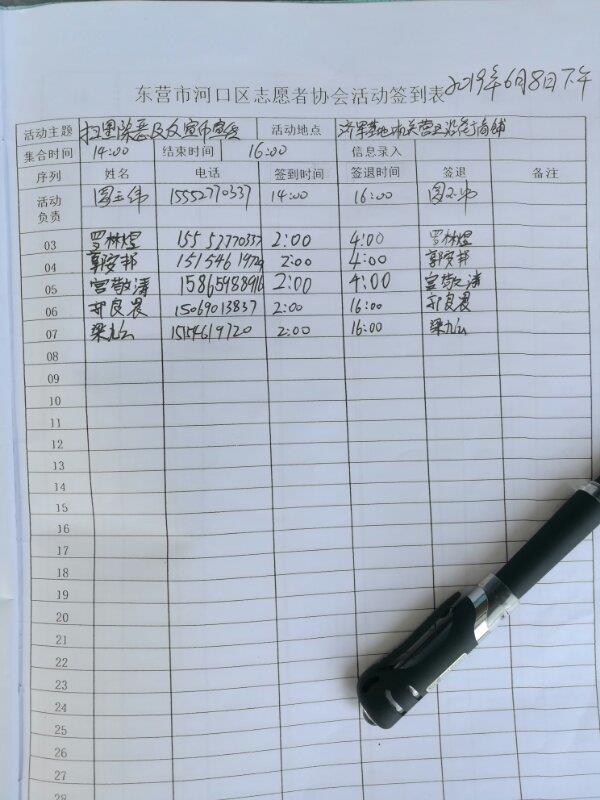 东营市河口区志愿者协会活动签到表 2019年6月8日下午
活动主题 扫黑除恶及反 宣传 活动地点 济军基地
集合时间 14:00 结束时间 16:00 信息录入
序列 姓名 电话 签到时间 签退时间 签退 备注
活动负责 15552770337 14:00 16:00
03 罗林煜 15552770337 2:00 4:00 罗林煜
04 郭安邦 2:00 4:00 郭安邦
05 宫敬涛 15865988916 2:00 4:00 宫敬涛
06 良晨 15069013837 2:00 16:00 良晨
07 梁九云 15154619720 2:00 16:00 梁九云
08
09
10
11
12
13
14
15
16
17
18
19
20
21
22
23
24
25
26
27
28